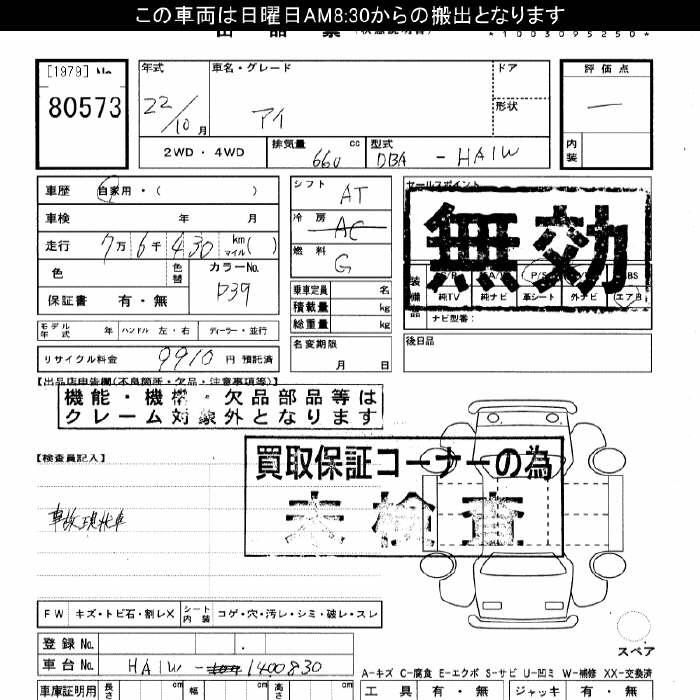 この車両は日曜日AM8:30からの搬出となります
*1003095250*
[1979] No.
80573
年式
22/10月
車名・グレード
アイ
ドア
形状
評価点
—
内装
2WD・4WD
排気量 660 cc
型式 DBA - HA1W
車歴 自家用・( )
車検 年 月
走行 7万6千430 km マイル( )
色
色替
カラーNo. D39
保証書 有・無
モデル年式 年 ハンドル 左・右 ディーラー・並行
リサイクル料金 9910 円 預託済
シフト AT
冷房 AC
燃料 G
乗車定員 名
積載量 kg
総重量 kg
名変期限
月 日
セールスポイント
無効
装備品
P/S
純TV 純ナビ 革シート 外ナビ エアB
ナビ型番:
後日品
【出品店申告欄(不良箇所・欠品・注意事項等)】
機能・機構・欠品部品等は
クレーム対象外となります
【検査員記入】
買取保証コーナーの為
未検査
事故現状車
FW キズ・トビ石・割レX シート内装 コゲ・穴・汚レ・シミ・破レ・スレ
スペア
登録No.
車台No. HA1W - 1400830
A-キズ C-腐食 E-エクボ S-サビ U-凹ミ W-補修 XX-交換済
車庫証明用 長さ cm 幅 cm 高さ cm
工具 有・無 ジャッキ 有・無